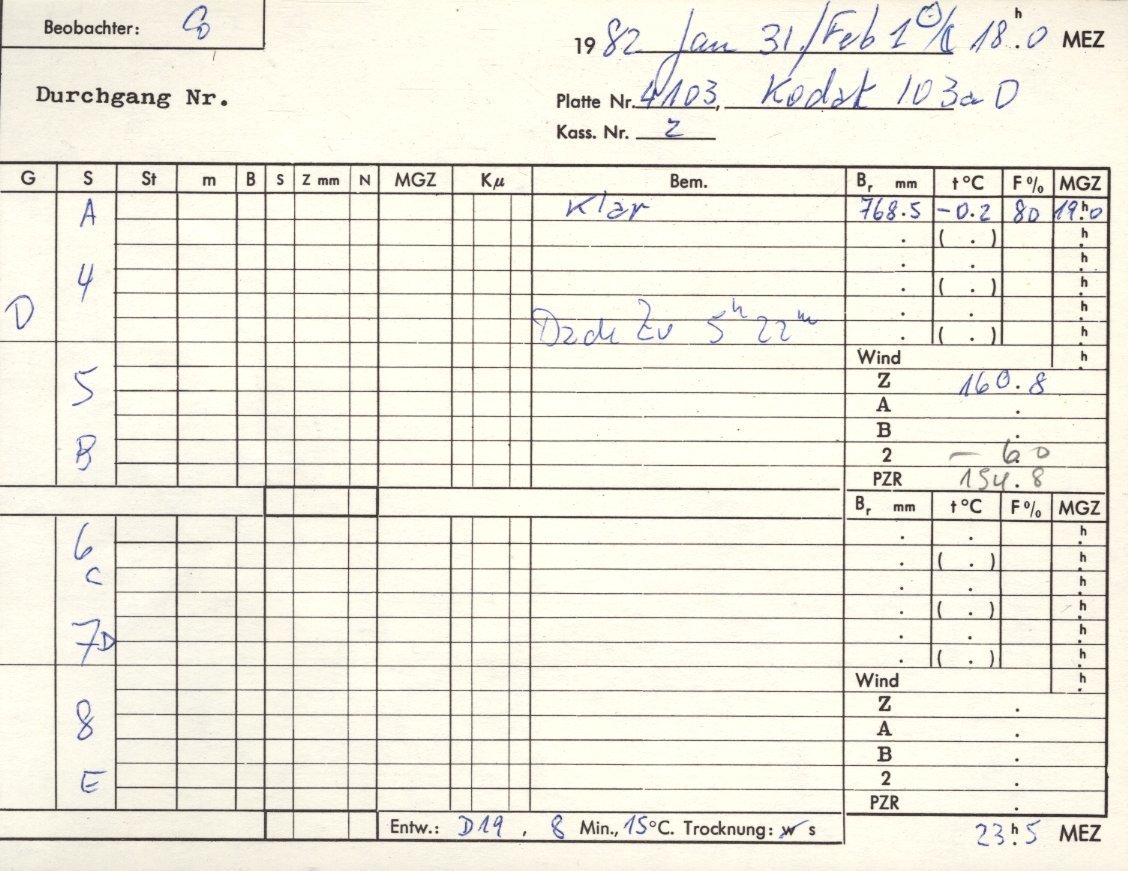 Beobachter:
1982 Jan 31./Feb 1 ☉/☾ 18ʰ.0 MEZ
Durchgang Nr.
Platte Nr. 4103, Kodak 103a D
Kass. Nr. 2
G S St m B S Z mm N MGZ Kμ Bem. Bᵣ mm t °C F % MGZ
A Klar 768.5 -0.2 80 19ʰ.0
. ( . ) ʰ.
. . ʰ.
4 . ( . ) ʰ.
D . . ʰ.
Zu 5ʰ 22ᵐ . ( . ) ʰ.
Wind ʰ.
5 Z 160.8
A .
B .
B 2 - 6.0
PZR 154.8
Bᵣ mm t °C F % MGZ
6 . . ʰ.
C . ( . ) ʰ.
. . ʰ.
. ( . ) ʰ.
7D . . ʰ.
. ( . ) ʰ.
Wind ʰ.
Z .
8 A .
B .
E 2 .
PZR .
Entw.: D19, 8 Min., 15°C. Trocknung: w s
23ʰ.5 MEZ